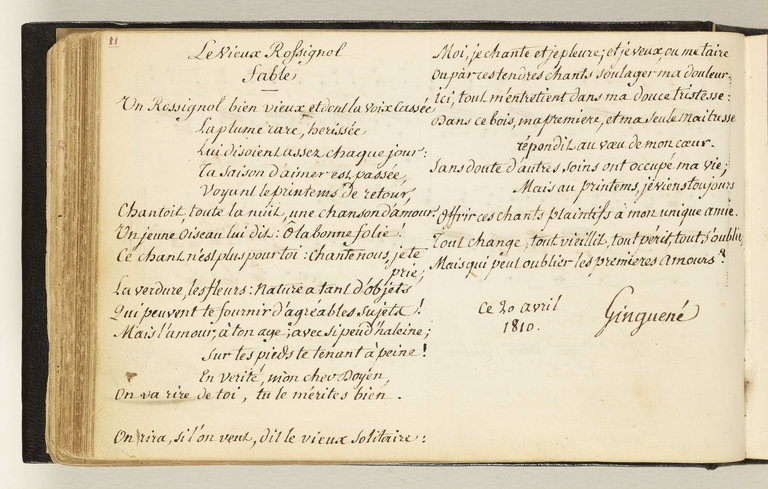 81
Le Vieux Rossignol
fable
Un Rossignol bien vieux et dont la voix Cassée,
La plume rare, herissée
Lui disoient assez chaque jour:
Ta saison d'aimer est passée,
Voyant le printems de retour,
Chantoit toute la nuit, une chanson d'amour.
Un jeune Oiseau lui dit: Ô la bonne folie!
Ce chant n'est plus pour toi: Chante nous, je te
prie,
La verdure, les fleurs: Nature a tant d'objets
Qui peuvent te fournir d'agréables sujets!
Mais l'amour, à ton age, avec si peu d'haleine;
Sur tes pieds te tenant à peine!
En verité, mon cher Doyen,
On va rire de toi, tu le mérites bien.
On rira, si l'on veut, dit le vieux solitaire:
Moi, je chante et je pleure; et je veux, ou me taire
Ou par ces tendres chants soulager ma douleur.
ici, tout m'entretient dans ma douce tristesse:
Dans ce bois, ma premiere, et ma seule Maitresse
répondit au vœu de mon cœur.
Sans doute d'autres soins ont occupé ma vie;
Mais au printems, je viens toujours
Offrir ces chants plaintifs à mon unique amie.
Tout change, tout vieillit, tout périt, tout s'oublie,
Mais qui peut oublier les premieres Amours?
Ce 20 avril
1810.
Ginguené